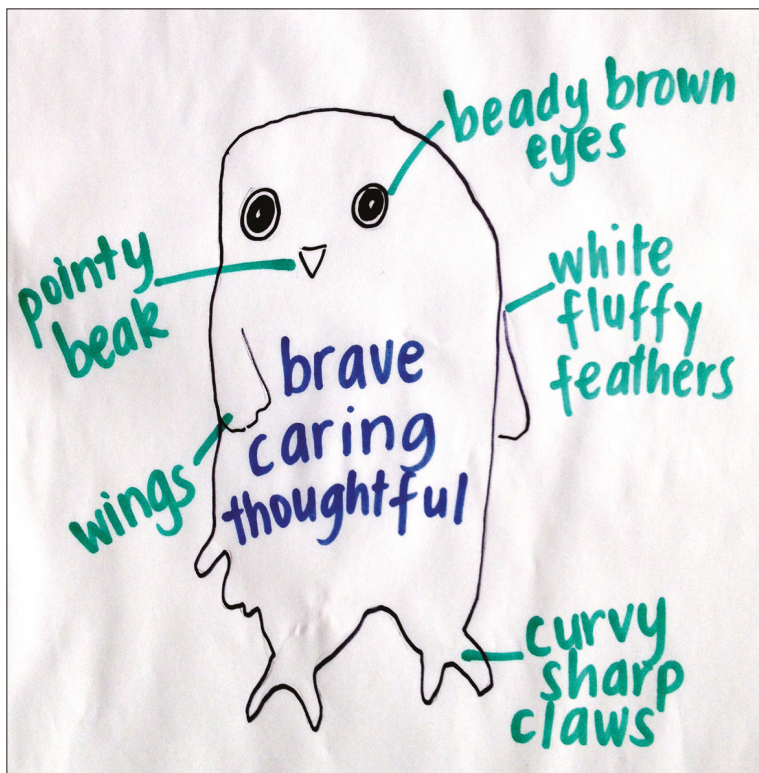 beady brown
eyes
pointy
beak
white
fluffy
feathers
brave
caring
thoughtful
wings
curvy
sharp
claws